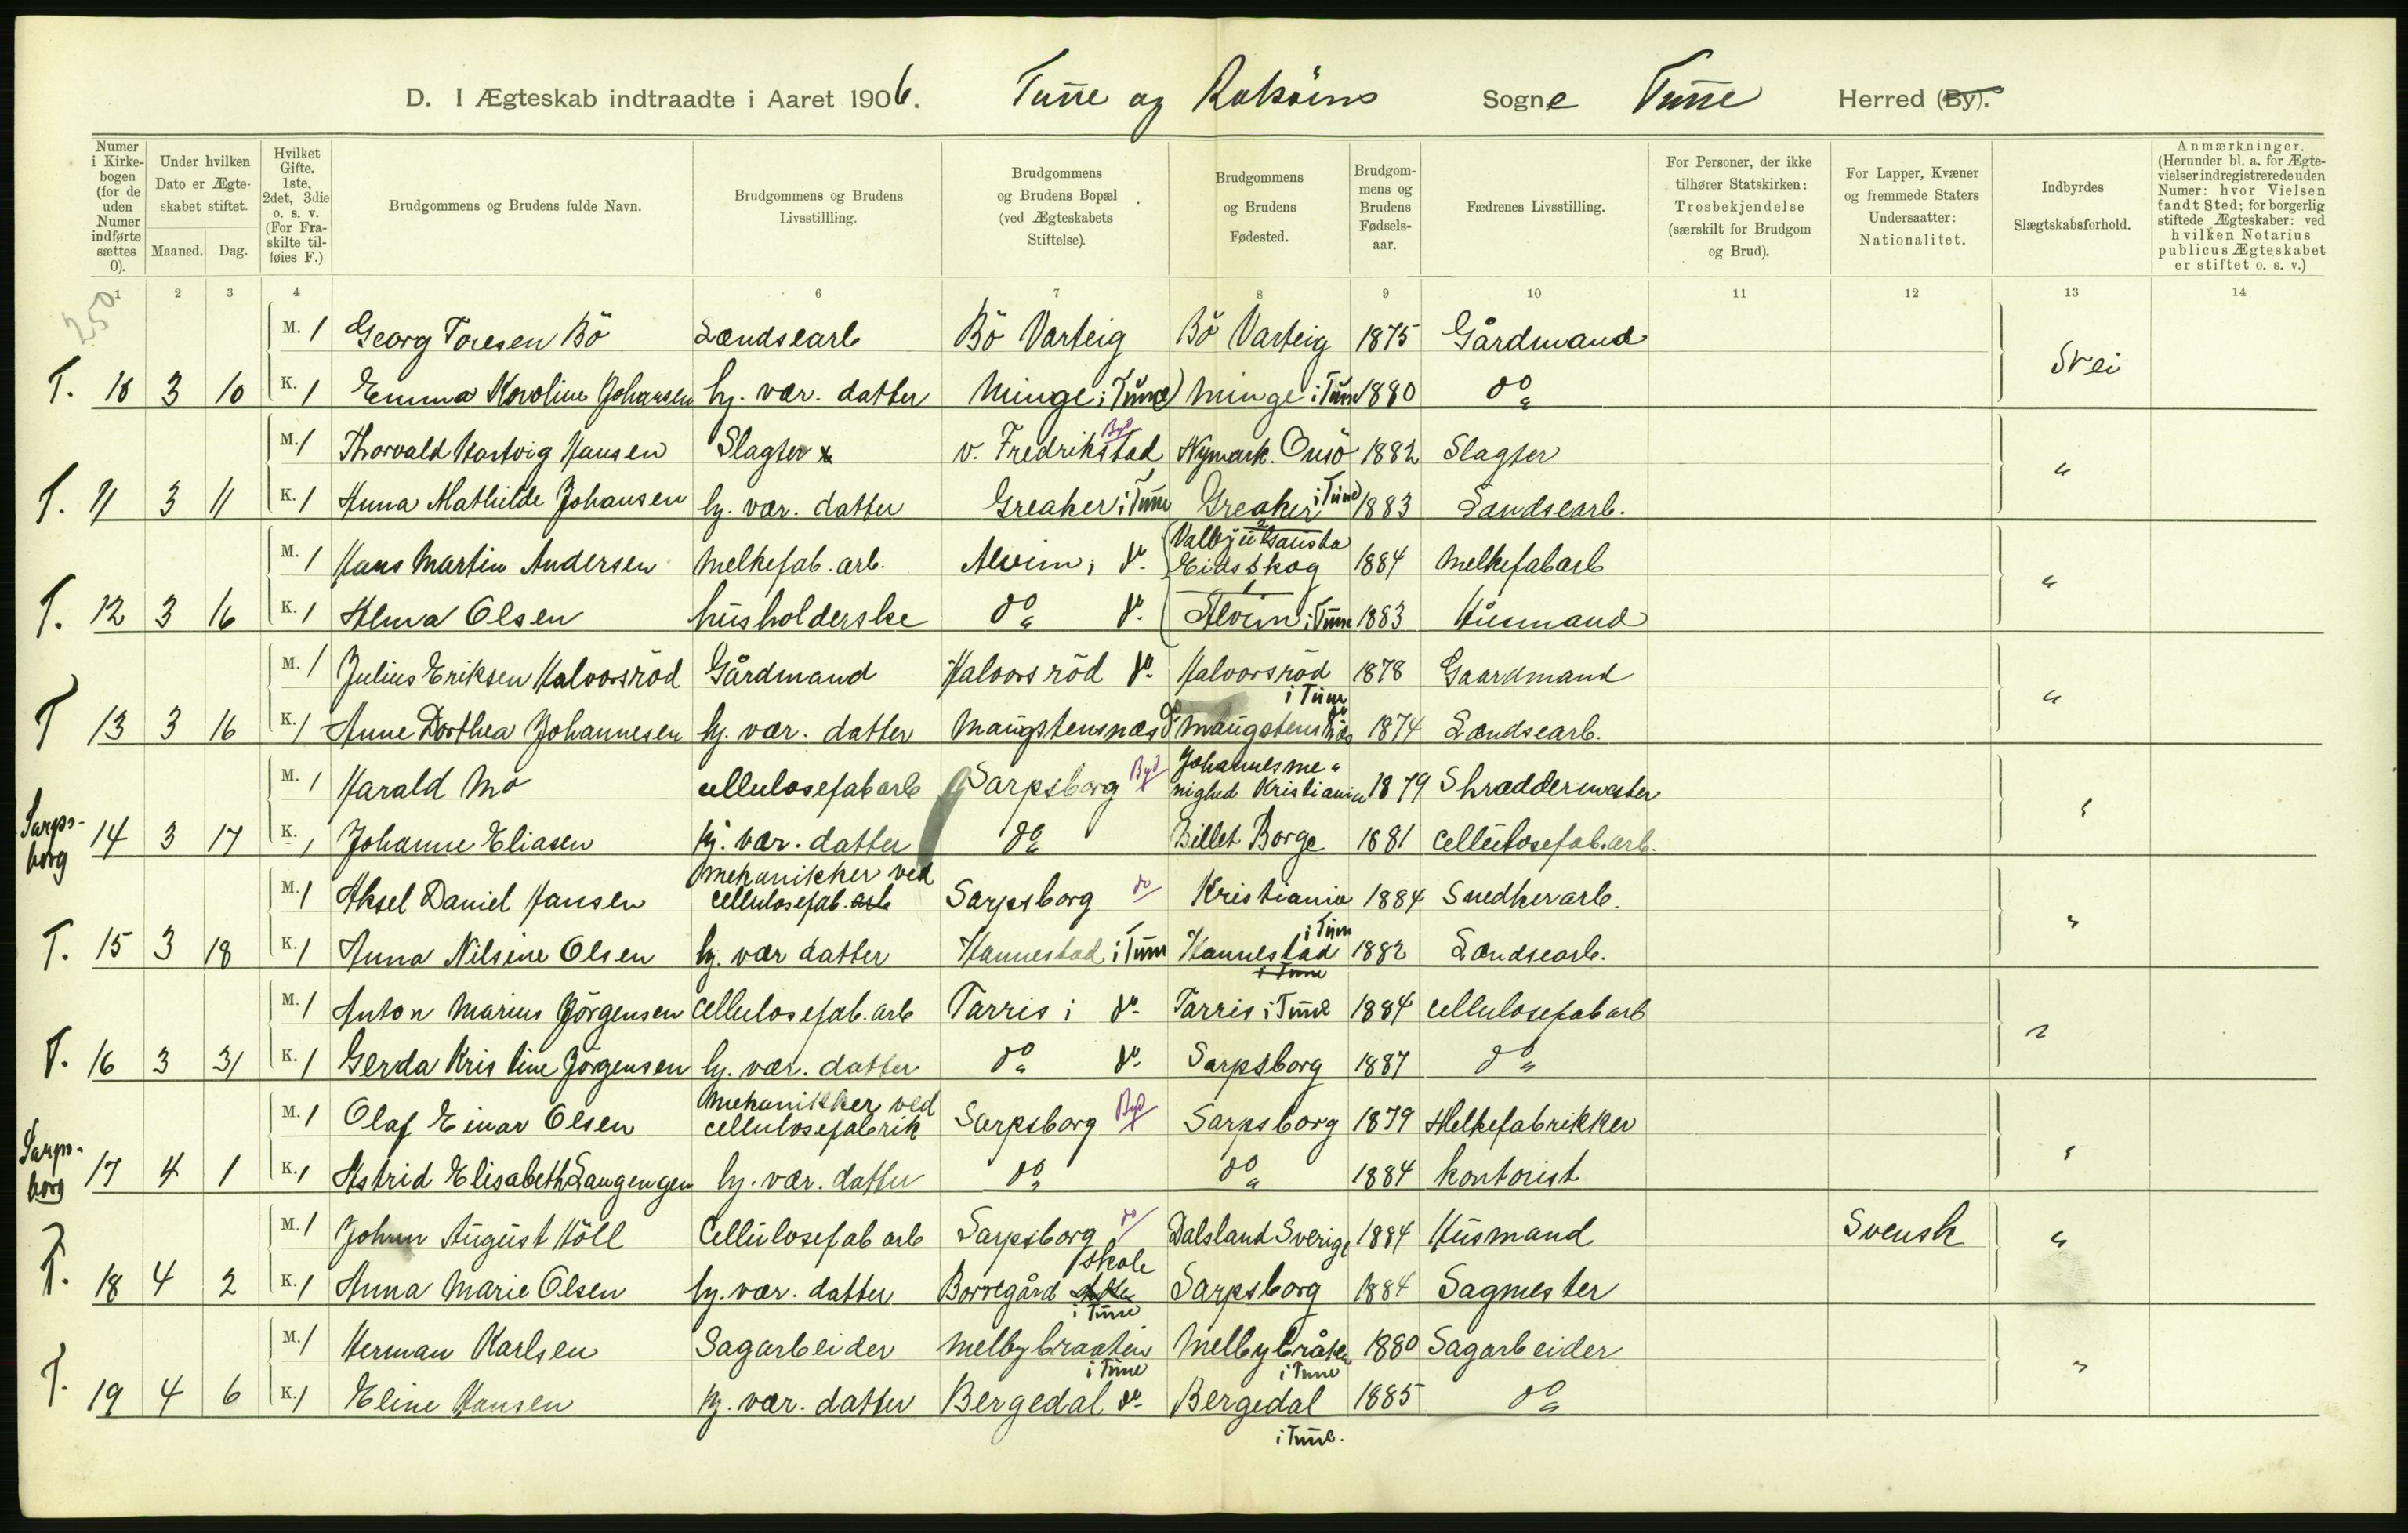 D. I Ægteskab indtraadte i Aaret 1906. Tune og Rokøens Sogne Tune Herred (By).
Numer i Kirkebogen (for de uden Numer indførte sættes 0).
Under hvilken Dato er Ægteskabet stiftet.
Maaned. Dag.
Hvilket Gifte. 1ste, 2det, 3die o. s. v. (For Fraskilte tilføies F.)
Brudgommens og Brudens fulde Navn.
Brudgommens og Brudens Livsstillling.
Brudgommens og Brudens Bopæl (ved Ægteskabets Stiftelse).
Brudgommens og Brudens Fødested.
Brudgommens og Brudens Fødselsaar.
Fædrenes Livsstilling.
For Personer, der ikke tilhører Statskirken: Trosbekjendelse (særskilt for Brudgom og Brud).
For Lapper, Kvæner og fremmede Staters Undersaatter: Nationalitet.
Indbyrdes Slægtskabsforhold.
Anmærkninger. (Herunder bl. a. for Ægtevielser indregistrerede uden Numer: hvor Vielsen fandt Sted; for borgerlig stiftede Ægteskaber: ved hvilken Notarius publicus Ægteskabet er stiftet o. s. v.)
1 2 3 4 6 7 8 9 10 11 12 13 14
250
M. 1 Georg Toresen Bö Landsearb Bö Varteig Bö Varteig 1875 Gårdmand
T. 10 3 10 K. 1 Emma Karoline Johansen hj. vær. datter Minge i Tune Minge i Tune 1880 do Nei
M. 1 Thorvald Hartvig Hansen Slagter v. Fredrikstad Byd Nymark. Onsö 1882 Slagter
T. 11 3 11 K. 1 Anna Mathilde Johansen hj. vær. datter Greaker i Tune Greaker i Tune 1883 Landsearb. "
M. 1 Hans Martin Andersen Melkefab. arb. Alvim i do Eidsskog 1884 Melkefabarb
T. 12 3 16 K. 1 Alma Olsen husholderske do do Alvim i Tune 1883 Husmand "
M. 1 Julius Eriksen Halvorsröd Gårdmand Halvorsröd do Halvorsröd i Tune 1878 Gaardmand
T 13 3 16 K. 1 Anne Dorthea Johannesen hj. vær. datter Maugstensnæs do Maugstensnæs do 1874 Landsearb. "
M. 1 Harald Mo cellulosefabarb Sarpsborg Byd Johannesmenighed Kristiania 1879 Skræddermester
Sarpsborg 14 3 17 K. 1 Johanne Eliasen hj. vær. datter do Billet Borge 1881 cellulosefab.arb. "
M. 1 Aksel Daniel Hansen Mekanikker ved cellulosefab. arb Sarpsborg do Kristiania 1884 Snedkerarb.
T. 15 3 18 K. 1 Anna Nilsine Olsen hj. vær datter Hannestad i Tune Hannestad i Tune i Tune 1882 Landsearb. "
M. 1 Anton Marius Jörgensen Cellulosefab. arb Tarris i do Tarris i Tune 1884 cellulosefabarb
T. 16 3 31 K. 1 Gerda Kristine Jörgensen hj. vær. datter do do Sarpsborg 1887 do "
M. 1 Olaf Einar Olsen Mekanikker ved cellulosefabrik Sarpsborg Byd Sarpsborg 1879 Melkefabrikker
Sarpsborg 17 4 1 K. 1 Astrid Elisabeth Langengen hj. vær. datter do do 1884 kontorist "
M. 1 Johan August Höll Cellulosefab arb Sarpsborg do Dalsland Sverige 1884 Husmand Svensk
T. 18 4 2 K. 1 Anna Marie Olsen hj. vær. datter Borregård skole i Tune Sarpsborg 1884 Sagmester "
M. 1 Herman Karlsen Sagarbeider Melbybraaten i Tune Melbybråten i Tune 1880 Sagarbeider
T. 19 4 6 K. 1 Eline Hansen hj. vær. datter Bergedal do Bergedal i Tune. 1885 do "